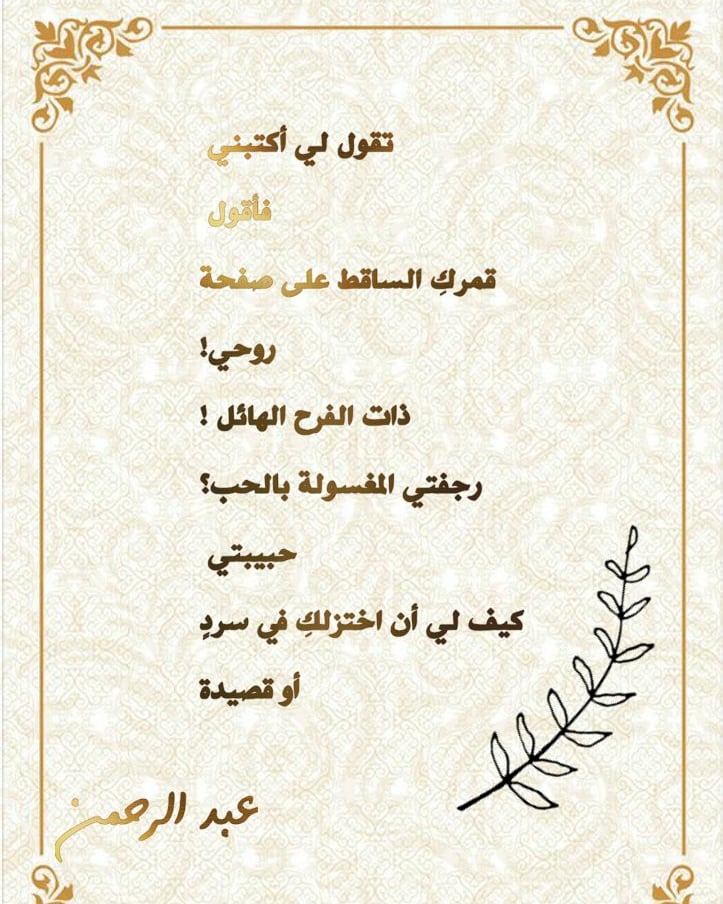 تقول لي أكتبني
فأقول
قمركِ الساقط على صفحة
روحي!
ذات الفرح الهائل !
رجفتي المغسولة بالحب؟
حبيبتي
كيف لي أن اختزلكِ في سردٍ
أو قصيدة
عبد الرحمن